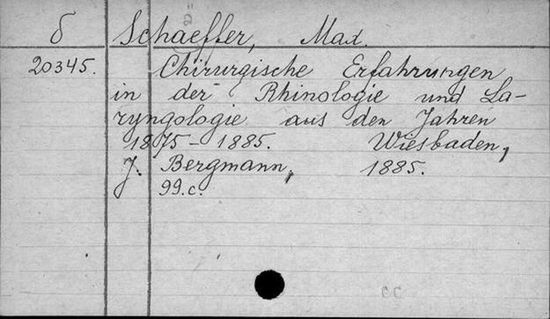 δ Schaeffer, Max.
20345. Chirurgische Erfahrungen
in der Rhinologie und La-
ryngologie aus den Jahren
1875-1885. Wiesbaden,
J. Bergmann, 1885.
99.c.
CC